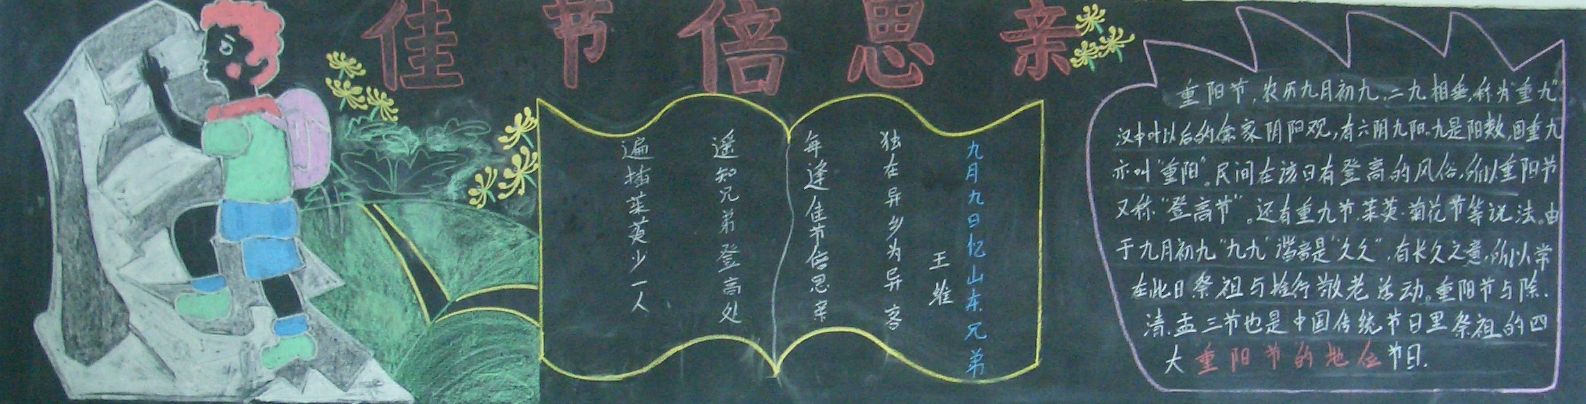 佳节倍思亲
九月九日忆山东兄弟
王维
独在异乡为异客
每逢佳节倍思亲
遥知兄弟登高处
遍插茱萸少一人
重阳节,农历九月初九,二九相重,称为"重九"
汉中叶以后的儒家阴阳观,有六阴九阳.九是阳数,因重九
亦叫"重阳"。民间在该日有登高的风俗,所以重阳节
又称"登高节"。还有重九节.茱萸.菊花节等说法.由
于九月初九"九九"谐音是"久久",有长久之意,所以常
在此日祭祖与推行敬老活动。重阳节与除.
清.盂三节也是中国传统节日里祭祖的四
大重阳节的地位节日.